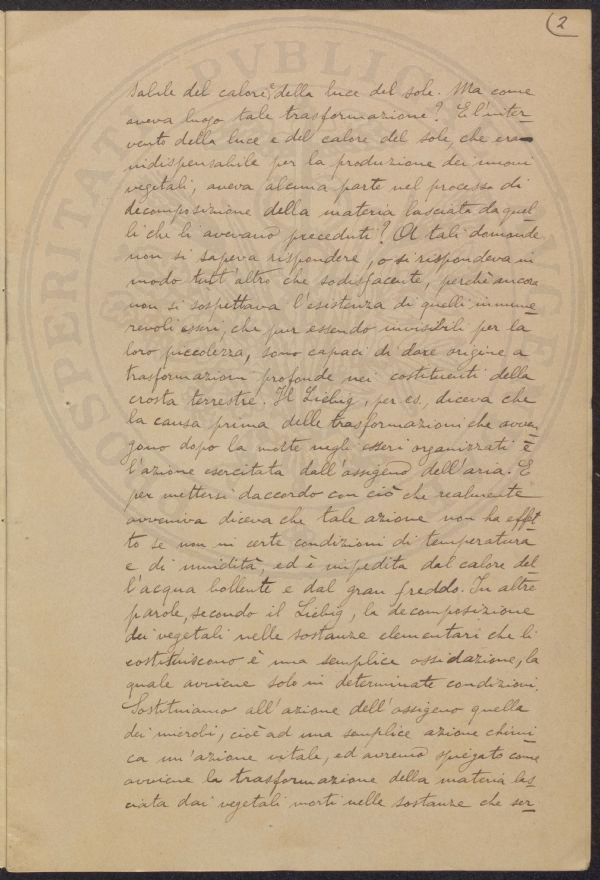 2
sabile del calore e della luce del sole. Ma come
aveva luogo tale trasformazione? E l'inter-
vento della luce e del calore del sole, che era
indispensabile per la produzione dei nuovi
vegetali, aveva alcuna parte nel processo di
decomposizione della materia lasciata da quel-
li che li avevano preceduti? A tali domande
non si sapeva rispondere, o si rispondeva in
modo tutt'altro che sodisfacente, perchè ancora
non si sospettava l'esistenza di quelli innume-
revoli esseri, che pur essendo invisibili per la
loro piccolezza, sono capaci di dare origine a
trasformazioni profonde nei costituenti della
crosta terrestre. Il Liebig, per es., diceva che
la causa prima delle trasformazioni che avven-
gono dopo la morte negli esseri organizzati è
l'azione esercitata dall'ossigeno dell'aria. E
per mettersi d'accordo con ciò che realmente
avveniva diceva che tale azione non ha effet-
to se non in certe condizioni di temperatura
e di umidità, ed è impedita dal calore del-
l'acqua bollente e dal gran freddo. In altre
parole, secondo il Liebig, la decomposizione
dei vegetali nelle sostanze elementari che li
costituiscono è una semplice ossidazione, la
quale avviene solo in determinate condizioni.
Sostituiamo all'azione dell'ossigeno quella
dei microbi, cioè ad una semplice azione chimi-
ca un'azione vitale, ed avremo spiegato come
avviene la trasformazione della materia las-
ciata dai vegetali morti nelle sostanze che ser-